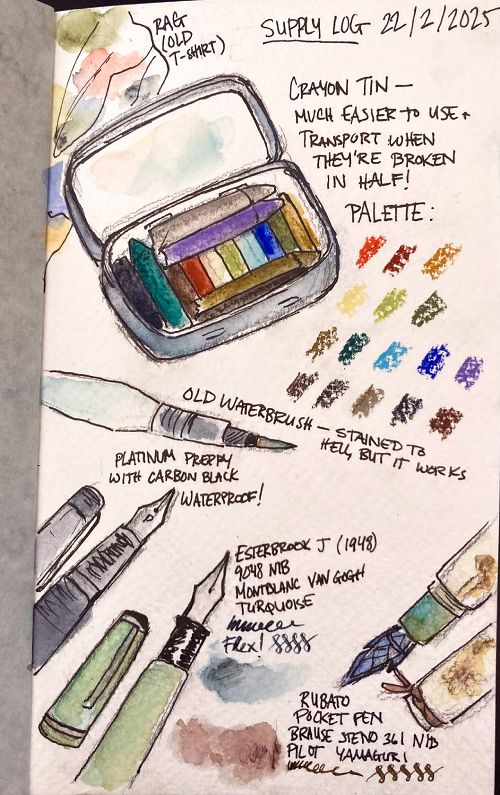 RAG
(OLD
T-SHIRT)
SUPPLY LOG 22/2/2025
CRAYON TIN —
MUCH EASIER TO USE +
TRANSPORT WHEN
THEY'RE BROKEN
IN HALF!
PALETTE:
OLD WATERBRUSH — STAINED TO
HELL, BUT IT WORKS
PLATINUM PREPPY
WITH CARBON BLACK
WATERPROOF!
ESTERBROOK J (1948)
9048 NIB
MONTBLANC VAN GOGH
TURQUOISE
Flex!
RUBATO
POCKET PEN
BRAUSE STENO 361 NIB
PILOT YAMAGURI